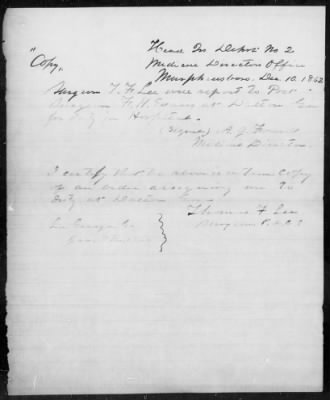 "Copy,
Head Qrs Dept No 2
Medical Directors Office
Murfreesboro. Dec 10. 1862
Surgeon T. F. Lee will report to Post
Surgeon F. H. Evans at Dalton Geo
for duty in Hospital.
(Signed) A. J. Foard
Medical Director.
I certify that the above is a true Copy
of an order assigning me to
duty at Dalton Geo.
Thomas F Lee
Surgeon P. A. C. S
La Grange Ga